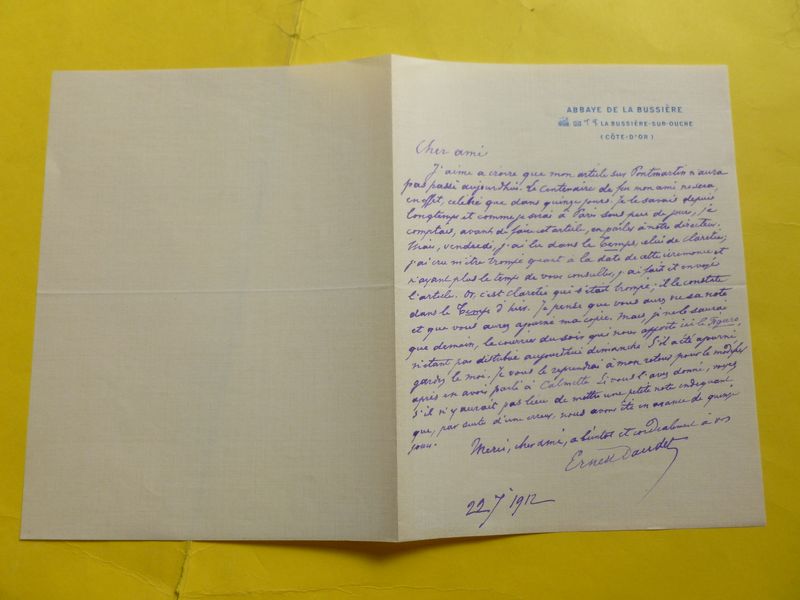 ABBAYE DE LA BUSSIÈRE
LA BUSSIÈRE-SUR-OUCHE
(CÔTE-D'OR)
Cher ami
J'aime à croire que mon article sur Pontmartin n'aura
pas passé aujourd'hui. Le Centenaire de feu mon ami ne sera,
en effet, célébré que dans quinze jours. Je le savais depuis
longtemps et comme je serai à Paris sous peu de jours, je
comptais, avant de faire cet article, en parler à notre directeur.
Mais, vendredi, j'ai lu dans le Temps, celui de Claretie;
j'ai cru m'être trompé quant à la date de cette cérémonie et
n'ayant plus le temps de vous consulter, j'ai fait et envoyé
l'article. Or, c'est Claretie qui s'était trompé; il le constate
dans le Temps d'hier. Je pense que vous aurez vu sa note
et que vous aurez ajourné ma copie. Mais, je ne le saurai
que demain, le courrier du soir qui nous apporte ici le Figaro,
n'étant pas distribué aujourd'hui dimanche. S'il a été ajourné,
gardez le moi. Je vous le reprendrai à mon retour pour le modifier
après en avoir parlé à Calmette. Si vous l'avez donné, voyez
s'il n'y aurait pas lieu de mettre une petite note indiquant
que, par suite d'une erreur, nous avons été en avance de quinze
jours.
Merci, cher ami, à bientôt et cordialement à vos
Ernest Daudet
22 1912